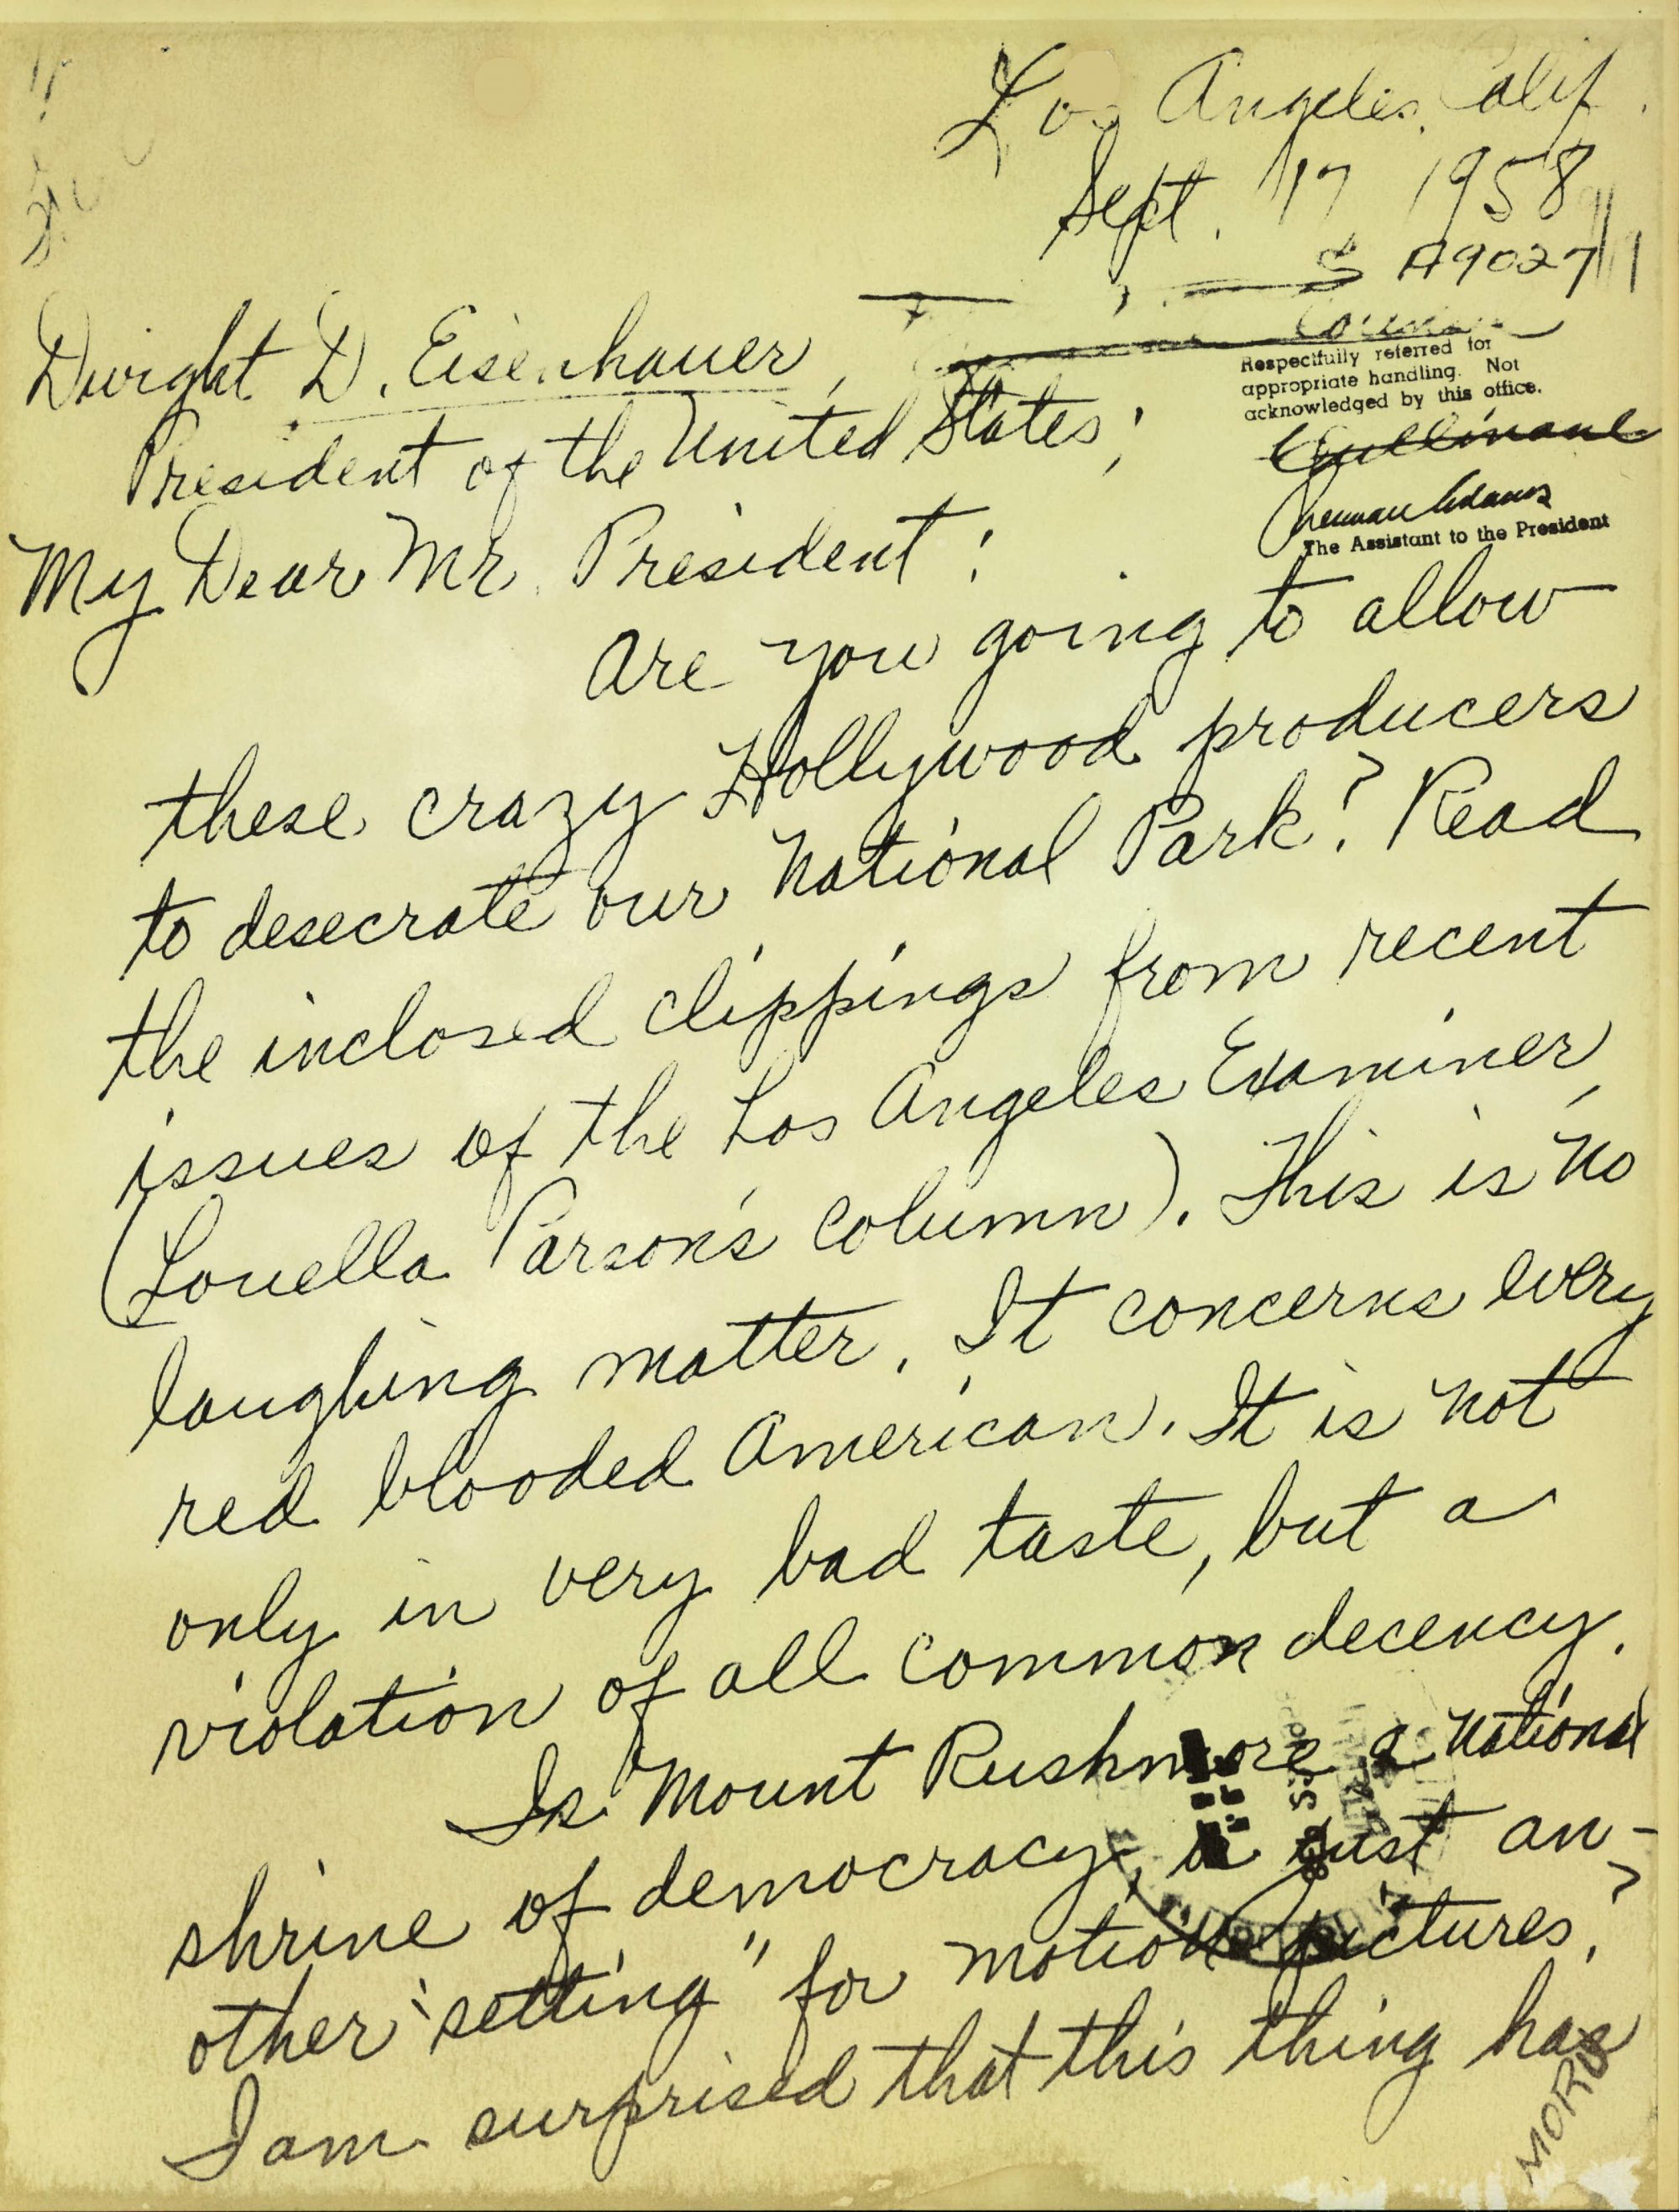 Los Angeles, Calif.
Sept. 17 1958
S A9027
Dwight D. Eisenhauer,
President of the United States;
Respectfully referred for
appropriate handling. Not
acknowledged by this office.
Sherman Adams
The Assistant to the President
My Dear Mr. President:
Are you going to allow
these crazy Hollywood producers
to desecrate our National Park? Read
the inclosed clippings from recent
issues of the Los Angeles Examiner,
(Louella Parson's column). This is no
laughing matter. It concerns every
red blooded American. It is not
only in very bad taste, but a
violation of all common decency.
Is Mount Rushmore a national
shrine of democracy, or just an-
other "setting" for motion pictures?
I am surprised that this thing has
MORE